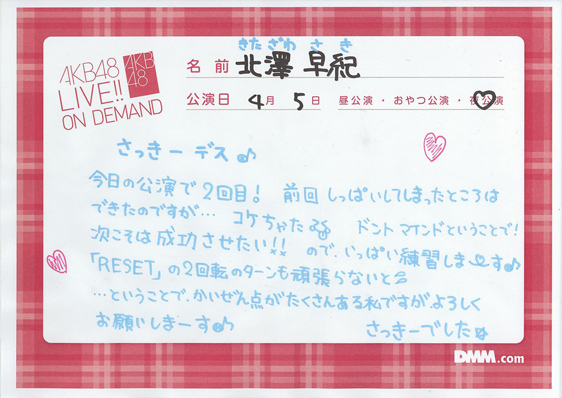 AKB48
LIVE!!
ON DEMAND
AKB
48
きたざわ さき
名前 北澤 早紀
公演日 4月 5日 昼公演・おやつ公演・夜公演
さっきーデス♪
今日の公演で2回目! 前回しっぱいしてしまったところは
できたのですが… コケちゃた ドントマインドということで!
次こそは成功させたい!! ので、いっぱい練習しま♡す♪
「RESET」の2回転のターンも頑張らないと
…ということで、かいぜん点がたくさんある私ですがよろしく
お願いしまーす♪ さっきーでした
DMM.com